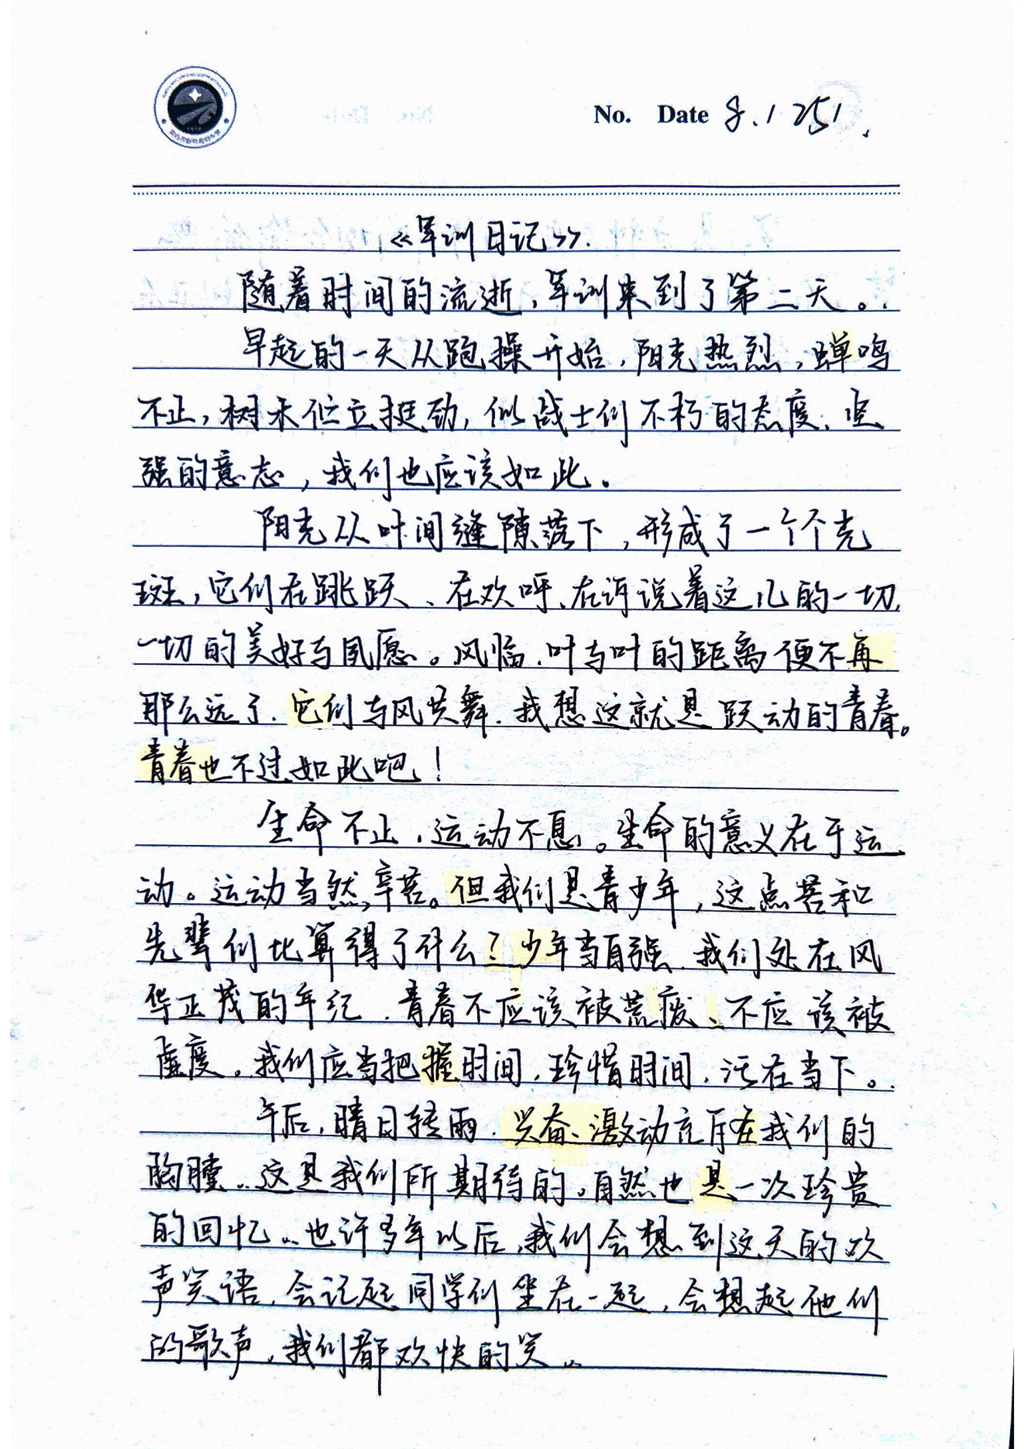 No. Date 8.1 251.
《军训日记》.
随着时间的流逝,军训来到了第二天。
早起的一天从跑操开始,阳光热烈,蝉鸣
不止,树木伫立挺劲,似战士们不朽的态度、坚
强的意志,我们也应该如此。
阳光从叶间缝隙落下,形成了一个个光
斑,它们在跳跃、在欢呼、在诉说着这儿的一切,
一切的美好与夙愿。风临,叶与叶的距离便不再
那么远了,它们与风共舞,我想这就是跃动的青春。
青春也不过如此吧!
生命不止,运动不息。生命的意义在于运
动。运动当然辛苦。但我们是青少年,这点苦和
先辈们比算得了什么?少年当自强,我们处在风
华正茂的年纪,青春不应该被荒废、不应该被
虚度。我们应当把握时间,珍惜时间,活在当下。
午后,晴日转雨,兴奋、激动充斥在我们的
胸膛。这是我们所期待的。自然也是一次珍贵
的回忆。也许多年以后,我们会想到这天的欢
声笑语,会记起同学们坐在一起,会想起他们
的歌声,我们都欢快的笑。